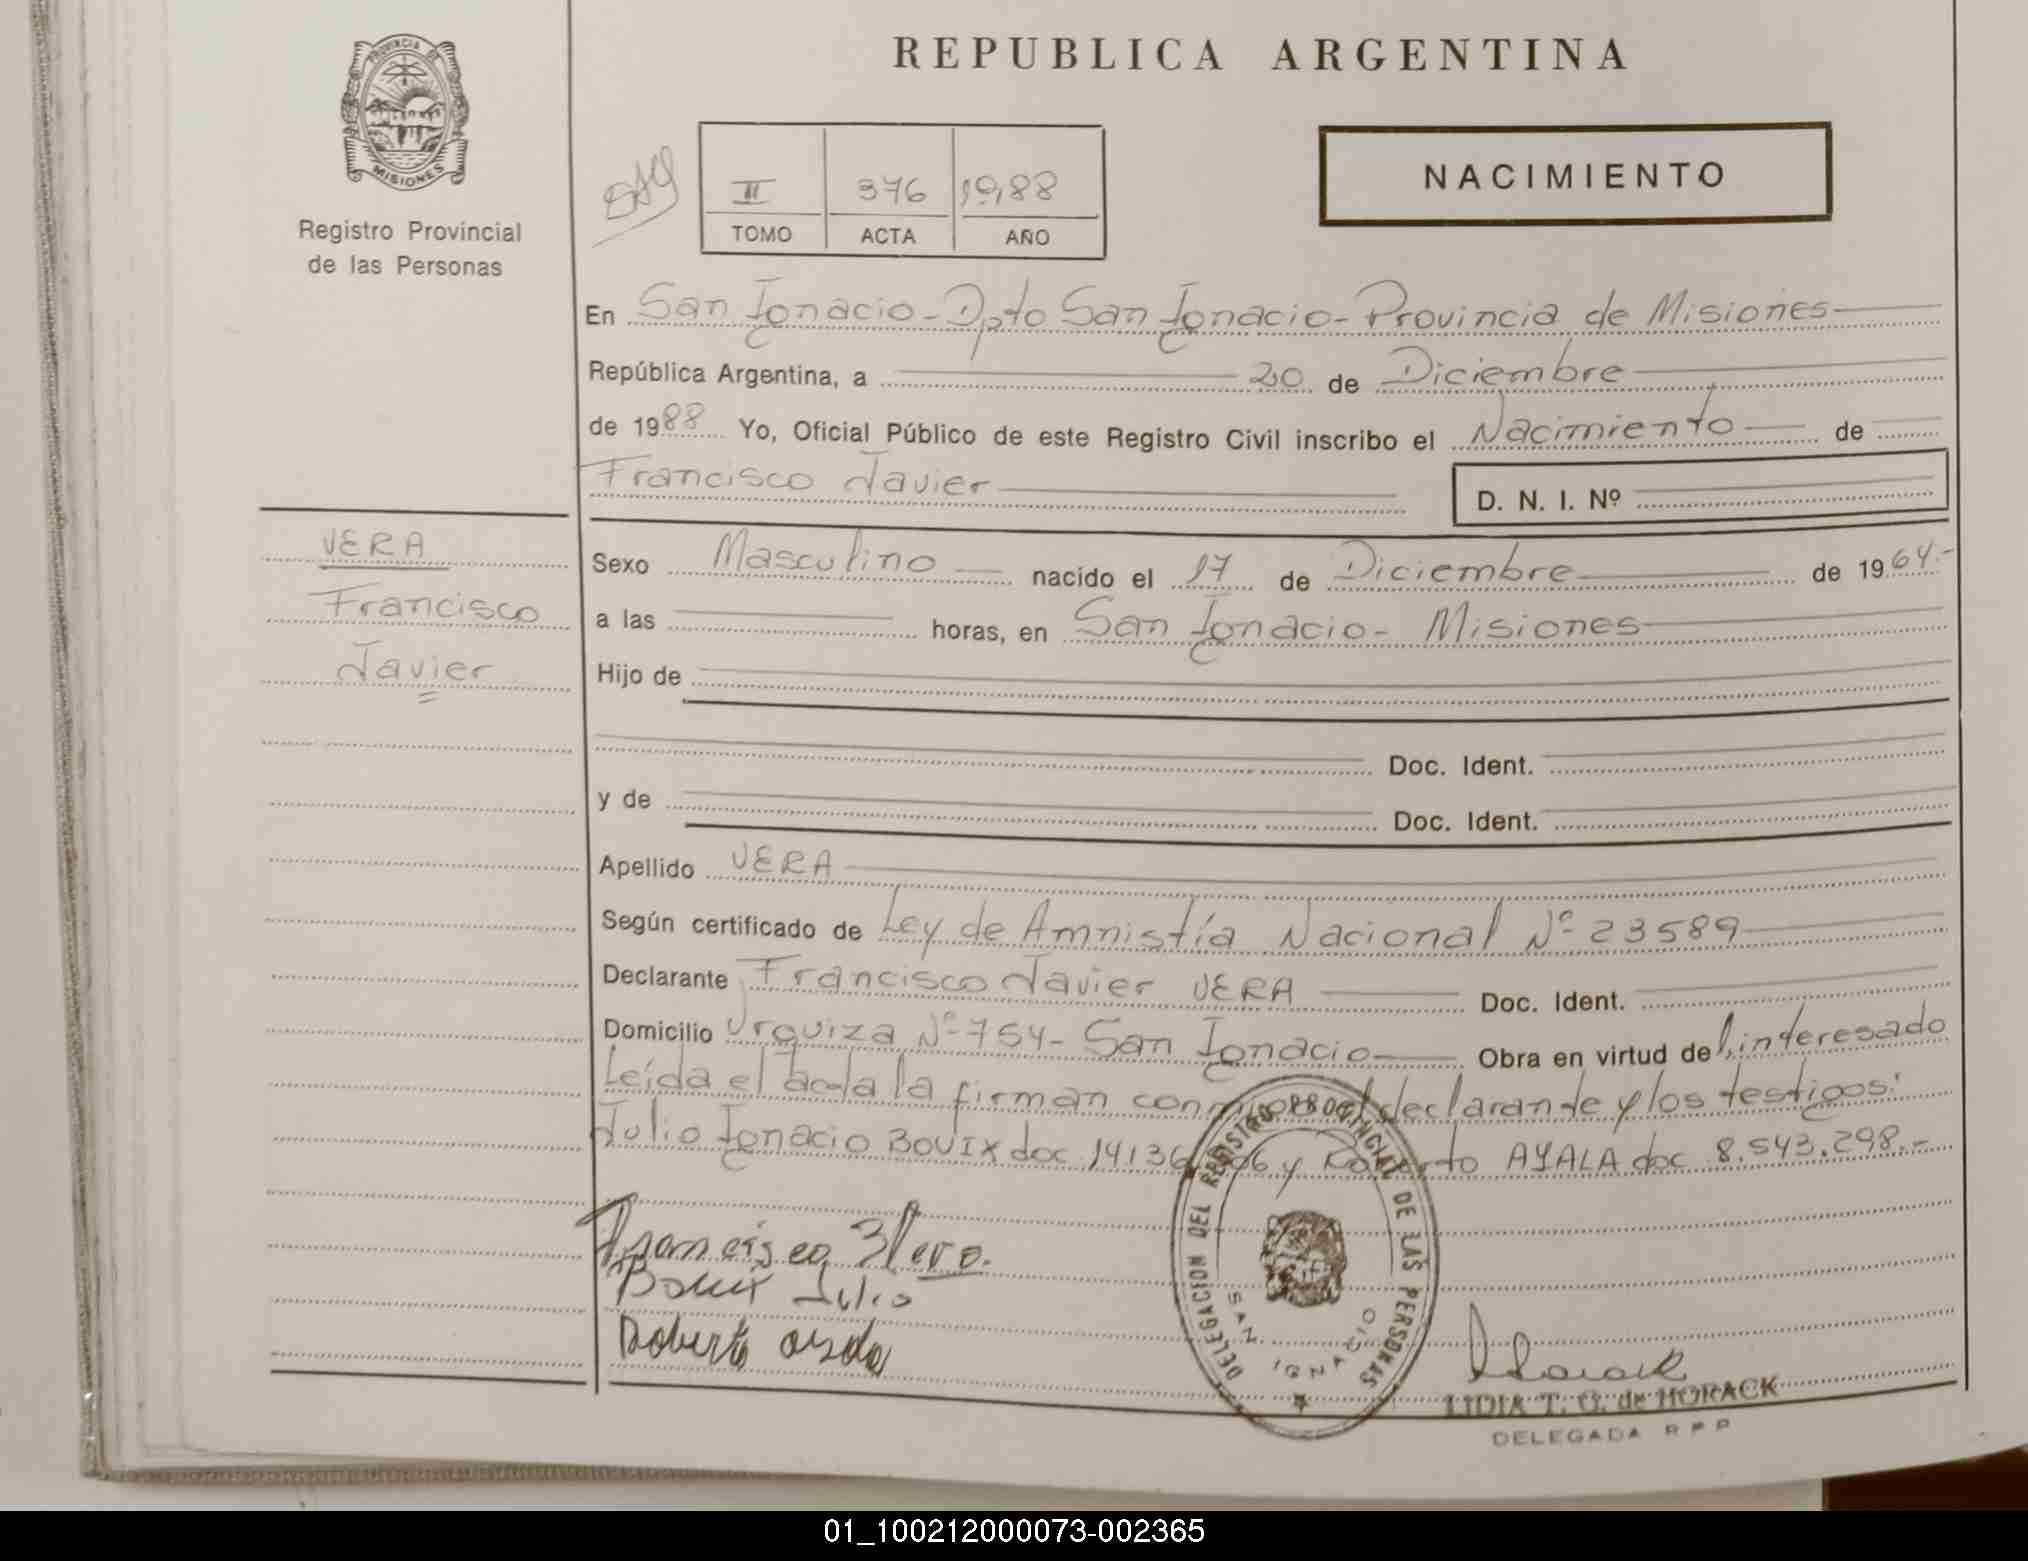 REPUBLICA ARGENTINA
PROVINCIA DE
MISIONES
Registro Provincial
de las Personas
II 376 19,88
TOMO ACTA AÑO
NACIMIENTO
En San Ignacio - Dpto San Ignacio - Provincia de Misiones
República Argentina, a 20 de Diciembre
de 1988 Yo, Oficial Público de este Registro Civil inscribo el Nacimiento de
Francisco Javier
D. N. I. Nº
VERA
Francisco
Javier
Sexo Masculino nacido el 17 de Diciembre de 1964.-
a las horas, en San Ignacio - Misiones
Hijo de
Doc. Ident.
y de Doc. Ident.
Apellido VERA
Según certificado de Ley de Amnistía Nacional Nº 23589
Declarante Francisco Javier VERA Doc. Ident.
Domicilio Urquiza Nº 754 - San Ignacio Obra en virtud del interesado
Leída el acta la firman conmigo el declarante y los testigos:
Julio Ignacio BOUIX doc 14136 06 y Roberto AYALA doc 8.543.298.-
Francisco J Vera.
Bouix Julio
Roberto ayala
DELEGACION DEL REGISTRO PROVINCIAL DE LAS PERSONAS
SAN IGNACIO
Horack
LIDIA T. G. de HORACK
DELEGADA R P P
01_100212000073-002365